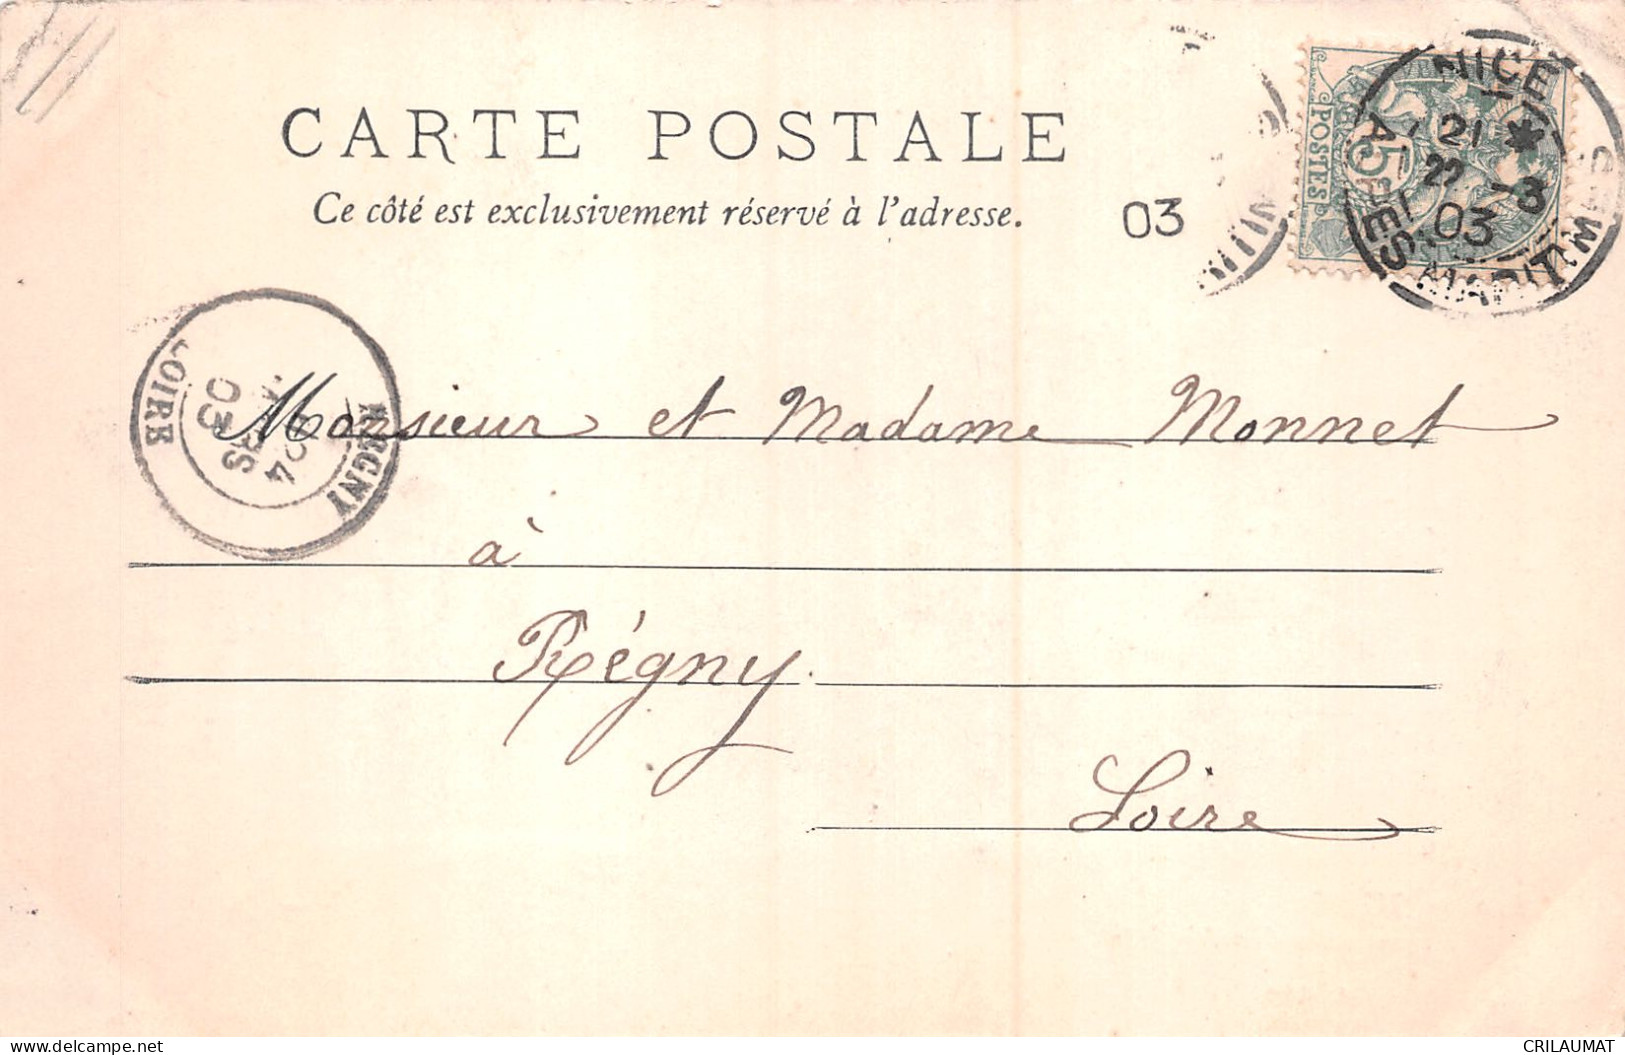 CARTE POSTALE
Ce côté est exclusivement réservé à l'adresse.
03
POSTES
5
NICE
21 *
22 -3
03
ALPES MARIT
RÉGNY
24
MARS
03
LOIRE
Monsieur et Madame Monnet
à
Régny
Loire
delcampe.net
CRILAUMAT